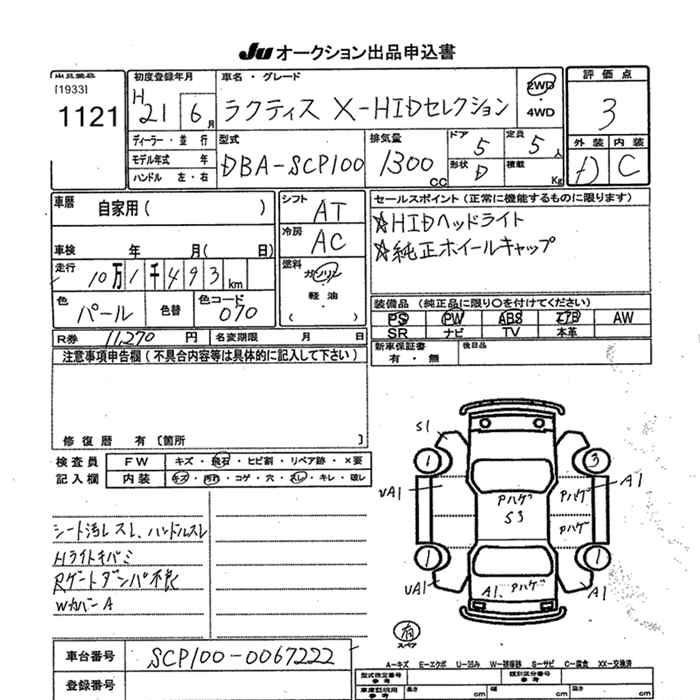 Ju オークション出品申込書
出品番号 [1933] 1121
初度登録年月 H21 6月
車名・グレード ラクティス X-HIDセレクション
2WD・4WD
評価点 3
外装 D 内装 C
ディーラー・並行
モデル年式 年
ハンドル 左・右
型式 DBA-SCP100
排気量 1300 CC
ドア 5 定員 5人
形状 D 積載 Kg
車歴 自家用( )
シフト AT
セールスポイント(正常に機能するものに限ります)
☆HIDヘッドライト
☆純正ホイールキャップ
車検 年 月( 日)
冷房 AC
走行 10万1千493km
燃料 ガソリン 軽油・( )
色 パール 色替 色コード 070
装備品(純正品に限り○を付けてください)
PS PW ABS エアB AW
SR ナビ TV 本革
R券 11,270円 名変期限 月 日
新車保証書 有・無 後日品
注意事項申告欄(不具合内容等は具体的に記入して下さい)
修復歴 有〔箇所 〕
検査員 FW キズ・飛石・ヒビ割・リペア跡・×要
記入欄 内装 キズ・汚れ・コゲ・穴・スレ・キレ・破レ
シート汚レスレ、ハンドルスレ
Hライトキバミ
Rゲートダンパ不良
WカバーA
S1
1 3
UA1 Pハゲ Pハゲ A1
S3 Pハゲ
1 1
UA1 A1、Pハゲ A1
有
スペア
車台番号 SCP100-0067222
A-キズ E-エクボ U-凹み W-補修跡 S-サビ C-腐食 XX-交換済
型式指定番号 類別区分番号
登録番号
長さ cm 幅 cm 高さ cm